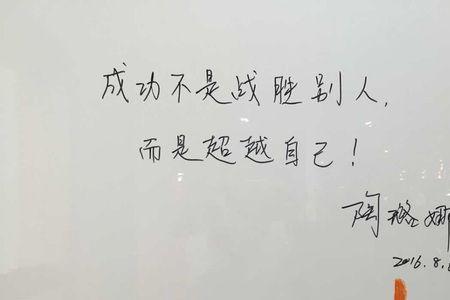 成功不是战胜别人，
而是超越自己！
陶璐娜
2016.8.